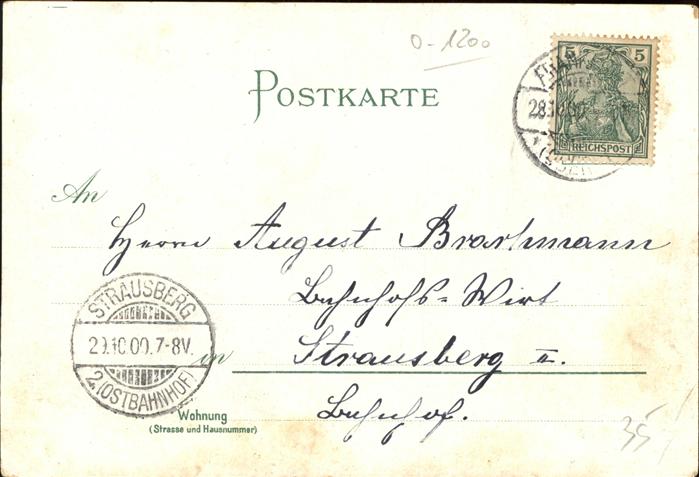 0-1200
5 5
REICHSPOST
28.10.00
POSTKARTE
An
Herrn August Brachmann
Bahnhofs=Wirt
in Strausberg II.
Bahnhof.
STRAUSBERG
29.10.00.7-8V.
2.(OSTBAHNHOF)
Wohnung
(Strasse und Hausnummer)
35